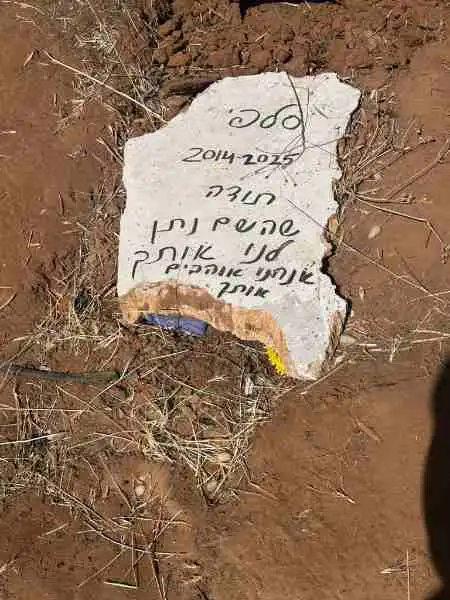 סלפי
2014-2025
תודה
שהשם נתן
לנו אותך
אנחנו אוהבים
אותך